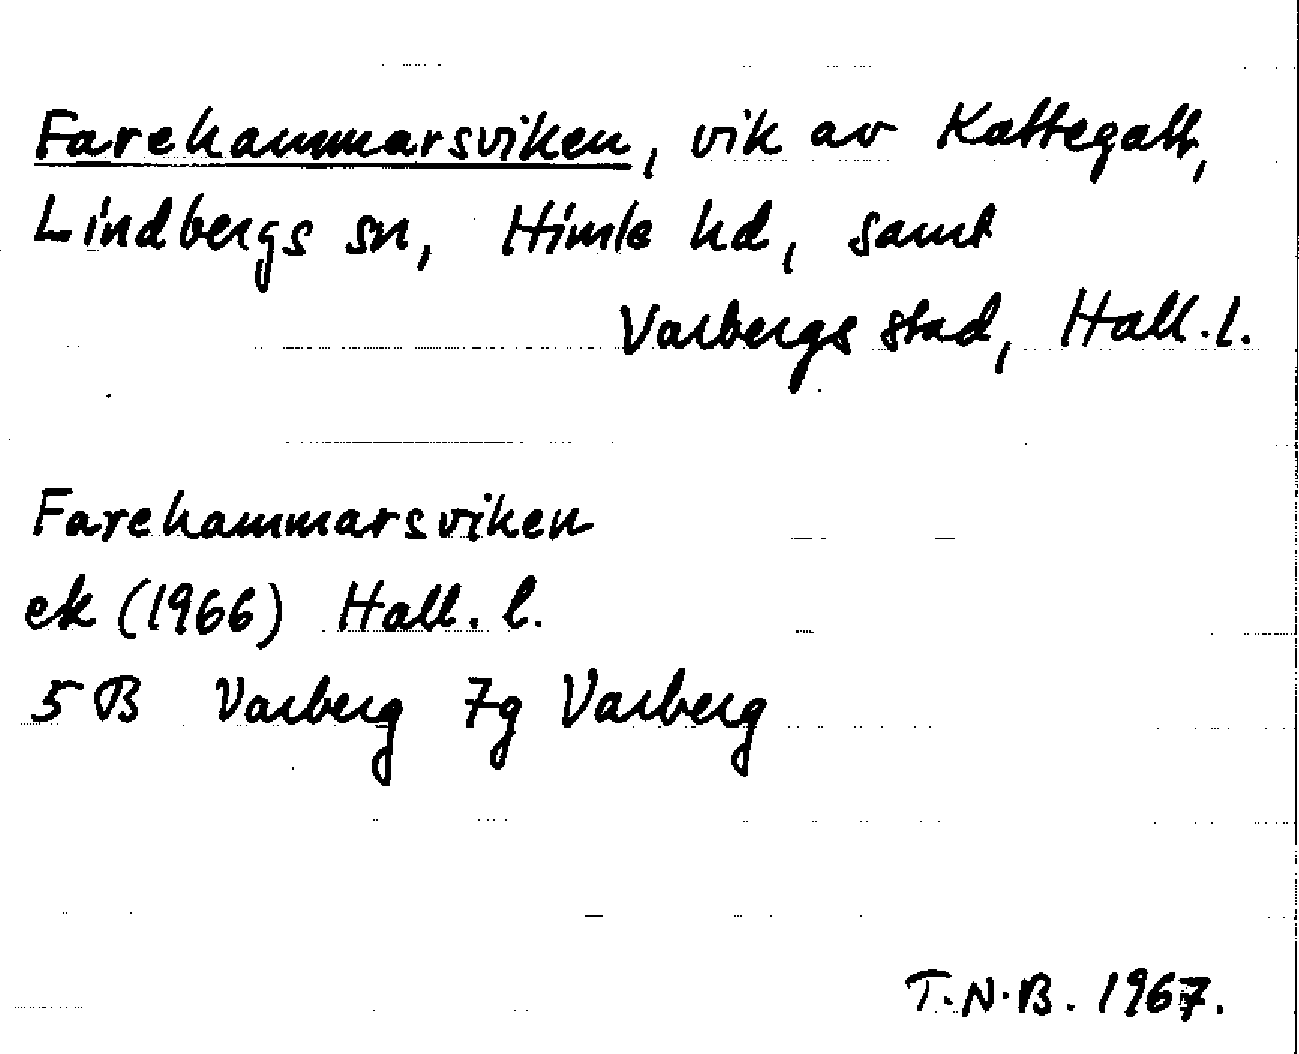 Farehammarsviken, vik av Kattegatt,
Lindbergs sn, Himle hd, samt
Varbergs stad, Hall.l.
Farehammarsviken
ek (1966) Hall. l.
5B Varberg 7g Varberg
T.N.B. 1967.